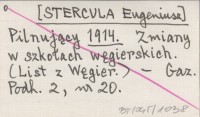 [STERCULA Eugeniusz]
Pilnujący 1914. Zmiany
w szkołach węgierskich.
(List z Węgier.) – Gaz.
Podh. 2, nr 20.